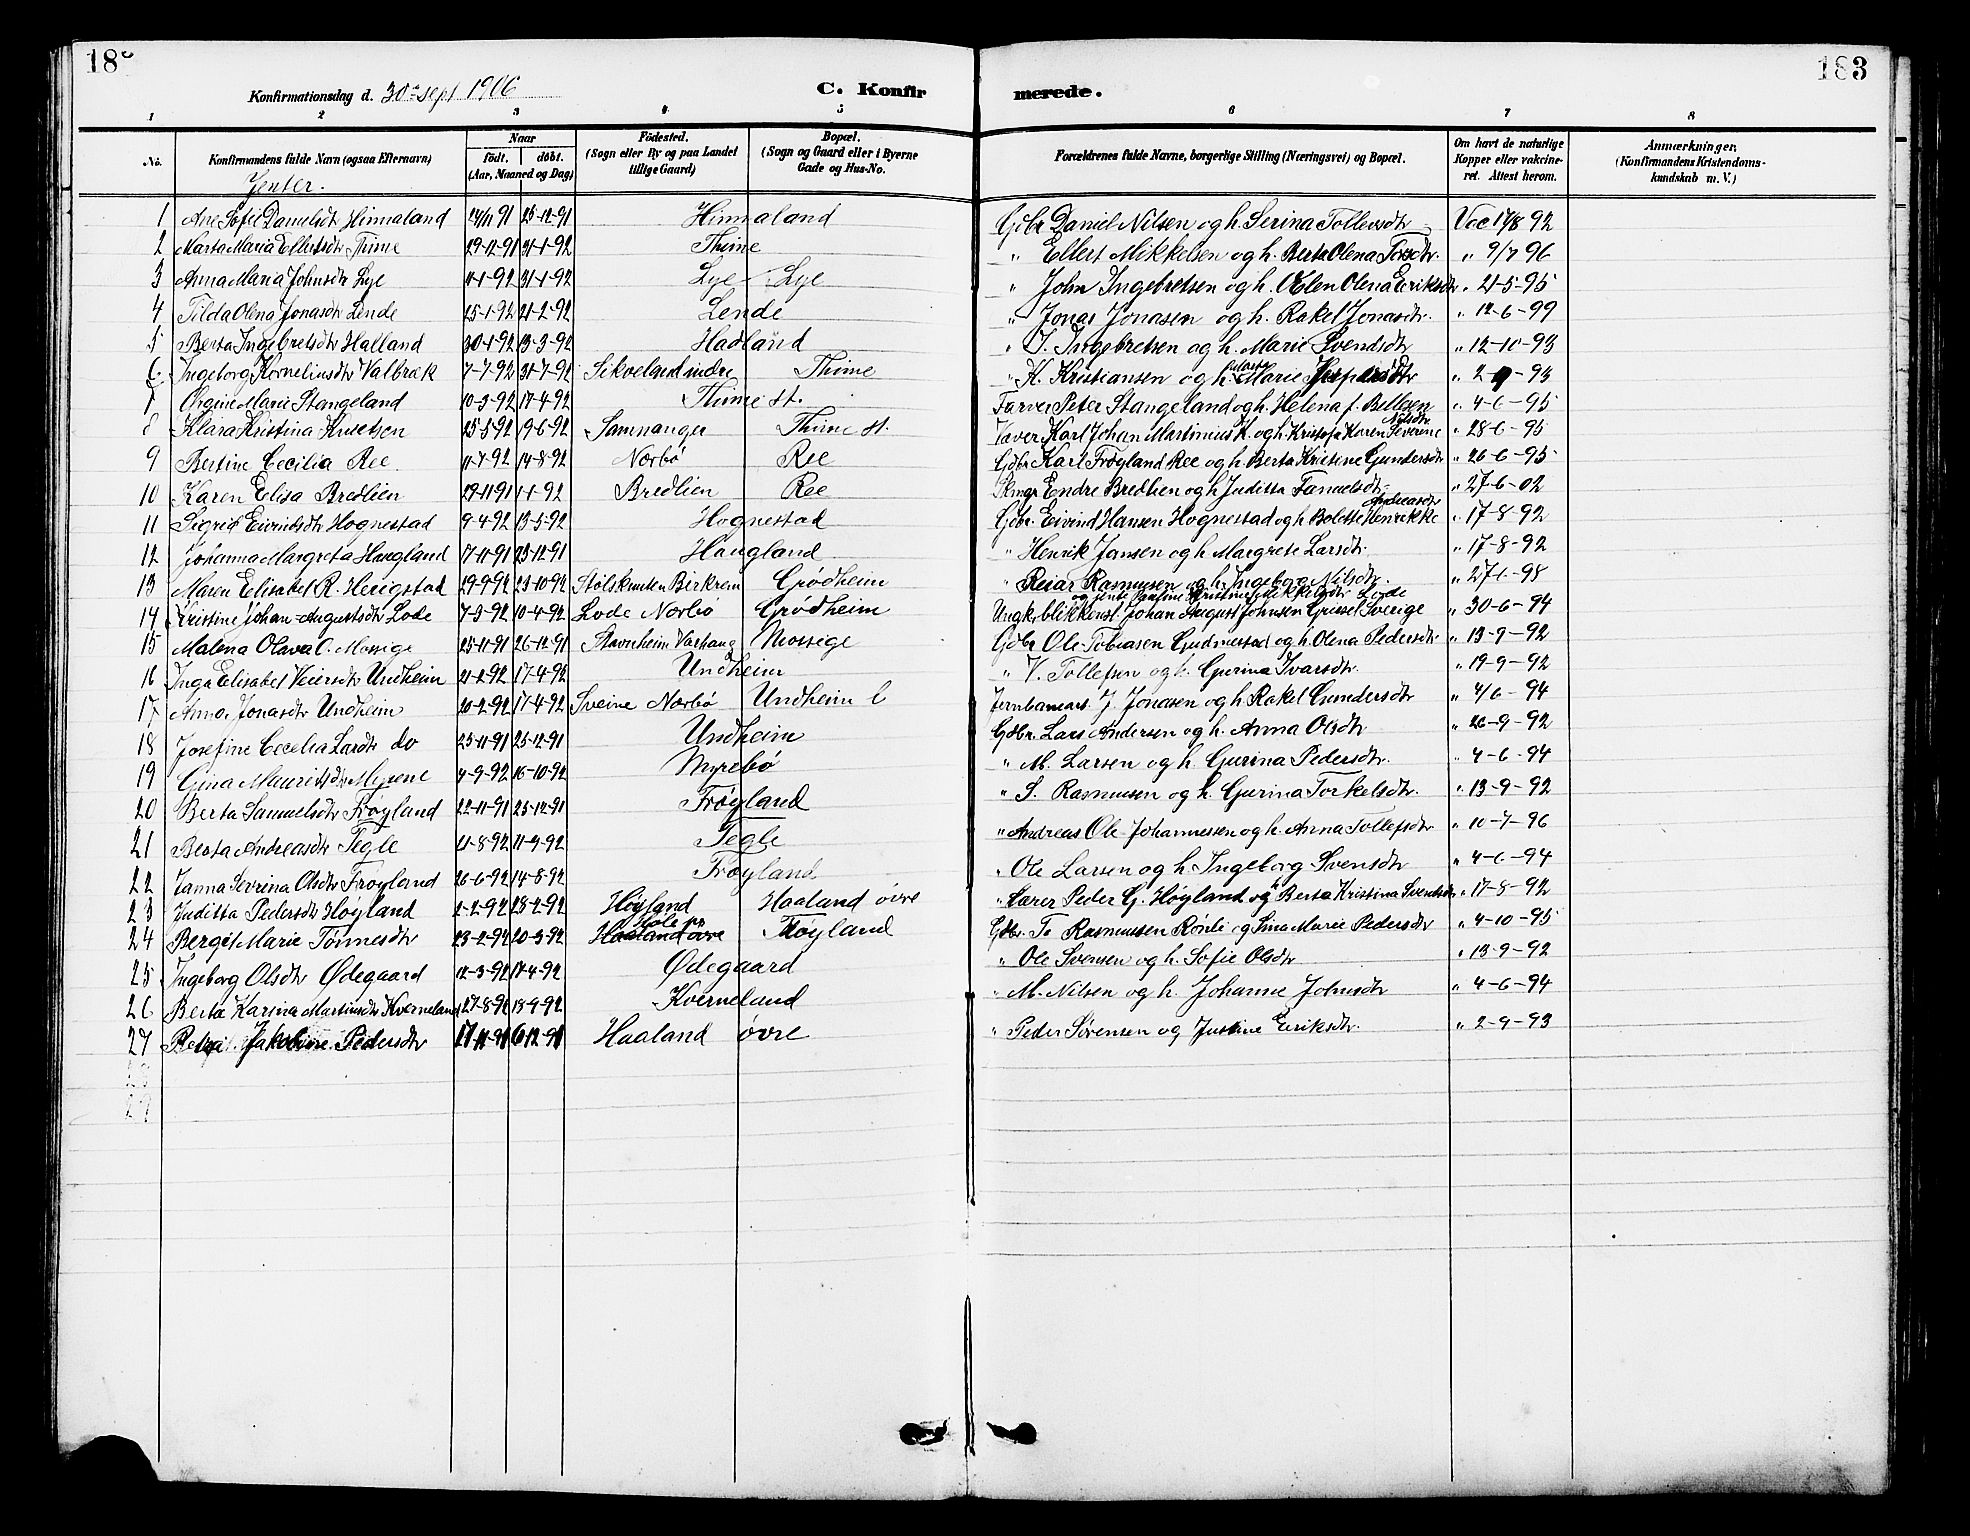 18
183
Konfirmationsdag d. 30te sept 1906 C. Konfirmerede.
1 2 3 4 5 6 7 8
No. Konfirmandens fulde Navn (ogsaa Efternavn) Naar født. døbt. (Aar, Maaned og Dag) Fødested. (Sogn eller By og paa Landet tillige Gaard) Bopæl. (Sogn og Gaard eller i Byerne Gade og Hus-No. Forældrenes fulde Navne, borgerlige Stilling (Næringsvei) og Bopæl. Om havt de naturlige Kopper eller vakcineret. Attest herom. Anmærkninger, (Konfirmandens Kristendomskundskab m. V.)
Jenter.
1 Ane Sofie Danielsdtr Hinnaland 24/11 91 25-12-91 Hinnaland Gdbr Daniel Nilsen og h. Serina Tollevsdtr Vac 17/8 92
2 Marta Maria Ellertsdtr Thime 29-12-91 31-1-92 Thime " Ellert Mikkelsen og h. Berta Olena Torsdtr. " 9/7 96
3 Anna Maria Johnsdtr Lye 11-1-92 31-1-92 Lye Lye " John Ingebretsen og h. Olen Olena Eriksdtr " 21-5-95
4 Tilda Olena Jonasdtr Lende 25-1-92 21-2-92 Lende " Jonas Jonasen og h. Rakel Jonasdtr. " 12-6-99
5 Berta Ingebretsdtr Haaland 30-1-92 13-3-92 Haaland " I. Ingebretsen og h. Marie Svendsdtr " 12-10-93
6 Ingeborg Korneliusdtr Valbræk 7-7-92 31-7-92 Sikveland indre Thime " K. Kristiansen og h. Marie Jespersdtr " 2-9-93
7 Orgine Marie Stangeland 10-3-92 17-4-92 Thime st. Farver Peter Stangeland og h. Helena f. Bellesen " 4-6-95
8 Klara Kristina Knutsen 25-5-92 19-6-92 Samnanger Thime st. Væver Karl Johan Martinius K. og h. Kristofa Karen Severine Nilsdtr " 28-6-95
9 Bertine Cecilia Ree 11-7-92 14-8-92 Nærbø Ree Gdbr Karl Frøyland Ree og h. Berta Kristine Gundersdtr " 26-6-95
10 Karen Elisa Bredlien 29-11-91 1-1-92 Bredlien Ree Endre Bredlien og h Juditta Samuelsdtr. " 27-6-02
11 Sigrid Eivindsdtr Hognestad 9-4-92 13-5-92 Hognestad Gdbr. Eivind Hansen Hognestad og h Bolette Henrikke Andreasdtr " 17-8-92
12 Johanna Margreta Haugland 17-11-91 23-12-91 Haugland " Henrik Jansen og h Margrete Larsdtr. " 17-8-92
13 Maren Elisabet R. Herigstad 29-9-92 23-10-92 Stølsknuten Birkrem Grødheim " Reiar Rasmusen og h. Ingeborg Nilsdtr. " 27-1-98
14 Kristine Johan-Augustsdtr Lode 7-3-92 10-4-92 Lode Nærbø Grødheim Ungk. blikkensl. Johan August Johnsen Grissel Sverige " 30-6-94
15 Malena Olava O. Mossige 25-11-91 26-12-91 Stavnheim Varhaug Mossige Gdbr Ole Tobiasen Gudmestad og h. Olena Pedersdtr. " 13-9-92
16 Inga Elisabet Veiersdtr Undheim 21-2-92 17-4-92 Undheim " V. Tollefsen og h. Gurina Ivarsdtr. " 19-9-92
17 Anna Jonasdtr Undheim 20-2-92 17-4-92 Sveine Nærbø Undheim Jernbanearb. J. Jonasen og h Rakel Gundersdtr " 4/6-94
18 Josefine Cecelia Larsdtr do 25-11-91 25-12-91 Undheim Gdbr. Lars Andersen og h. Anna Olsdtr " 26-9-92
19 Gina Mauritsdtr Myrene 4-9-92 16-10-92 Myrebø " M. Larsen og h. Gurina Pedersdtr. " 4-6-94
20 Berta Samuelsdtr Frøyland 22-11-91 25-12-91 Frøyland " S. Rasmusen og h. Gurina Torkelsdtr. " 13-9-92
21 Berta Andreasdtr Tegle 21-8-92 11-9-92 Tegle " Andreas Ole Johannessen og h. Anna Tollefsdtr " 10-7-96
22 Janna Sevrina Olsdtr Frøyland 26-6-92 14-8-92 Frøyland " Ole Larsen og h. Ingeborg Svensdtr " 4-6-94
23 Juditta Pedersdtr Høyland 1-2-92 28-2-92 Høyland Haaland øvre " Lærer Peder G. Høyland og h Berta Kristina Svensdtr " 17-8-92
24 Bergit Marie Tønnesdtr 23-2-92 20-3-92 Høle pr Haaland øvre Frøyland Gdbr. To Rasmussen Rønli og Sina Marie Pedersdtr " 4-10-95
25 Ingeborg Olsdtr Ødegaard 12-3-92 17-4-92 Ødegaard " Ole Svensen og h. Sofie Olsdtr " 13-9-92
26 Berta Karina Martinsdtr Kverneland 27-8-92 18-9-92 Kverneland " M. Nilsen og h. Johanne Johnsdtr " 4-6-94
27 Jakobine Pedersdtr 17-11-91 6-12-91 Haaland øvre " Peder Sørensen og Justine Eriksdtr. " 2-9-93
28
29